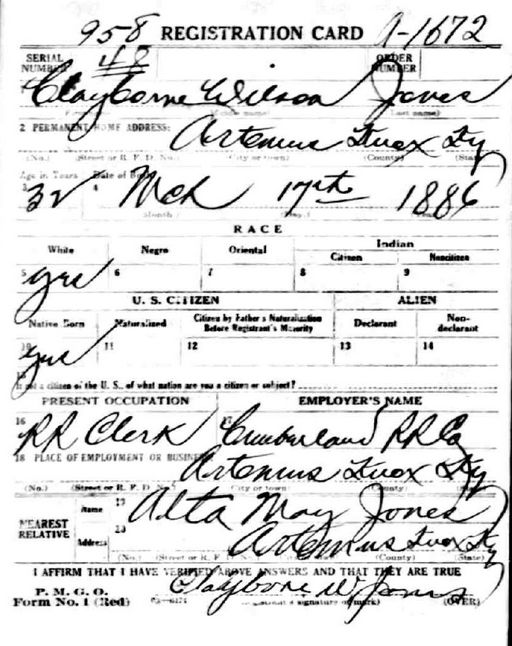 958 REGISTRATION CARD A-1672
SERIAL NUMBER 48 ORDER NUMBER
Clayborne Wilson Jones
(Middle name) (Last name)
2 PERMANENT HOME ADDRESS: Artemus Knox Ky
(No.) (Street or R. F. D. No.) (City or town) (County) (State)
Age in Years Date of Birth
3 32 4 Mch 17th 1886
(Month) (Day)
RACE
White Negro Oriental Indian
Citizen Noncitizen
5 yes 6 7 8 9
U. S. CITIZEN ALIEN
Native Born Naturalized Citizen by Father's Naturalization Before Registrant's Majority Declarant Non-declarant
10 yes 11 12 13 14
15
If not a citizen of the U. S., of what nation are you a citizen or subject?
PRESENT OCCUPATION EMPLOYER'S NAME
16 RR Clerk 17 Cumberland RR Co
18 PLACE OF EMPLOYMENT OR BUSINESS
Artemus Knox Ky
(No.) (Street or R. F. D. No.) (City or town) (County)
NEAREST RELATIVE Name 19 Alta May Jones
Address 20 Artemus Knox Ky
(No.) (Street or R. F. D. No.) (County) (State)
I AFFIRM THAT I HAVE VERIFIED ABOVE ANSWERS AND THAT THEY ARE TRUE
P. M. G. O.
Form No. 1 (Red) Clayborne W. Jones
(Registrant's signature or mark) (OVER)